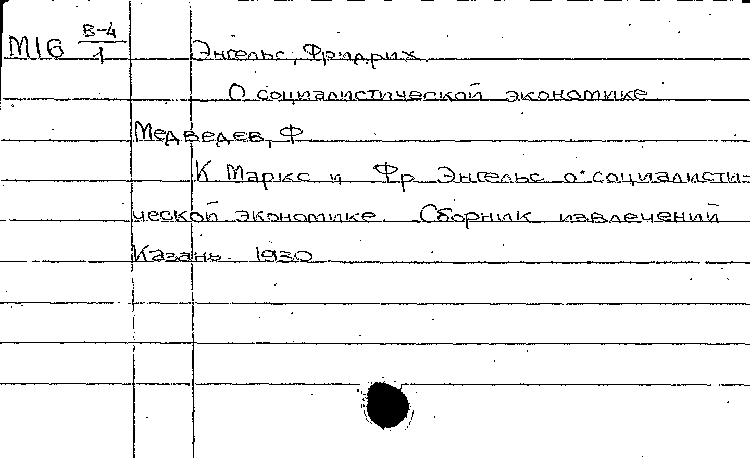 М16 В-4/1 Энгельс, Фридрих
О социалистической экономике
Медведев, Ф
К Маркс и Фр Энгельс о социалисти-
ческой экономике. Сборник извлечений
Казань. 1930